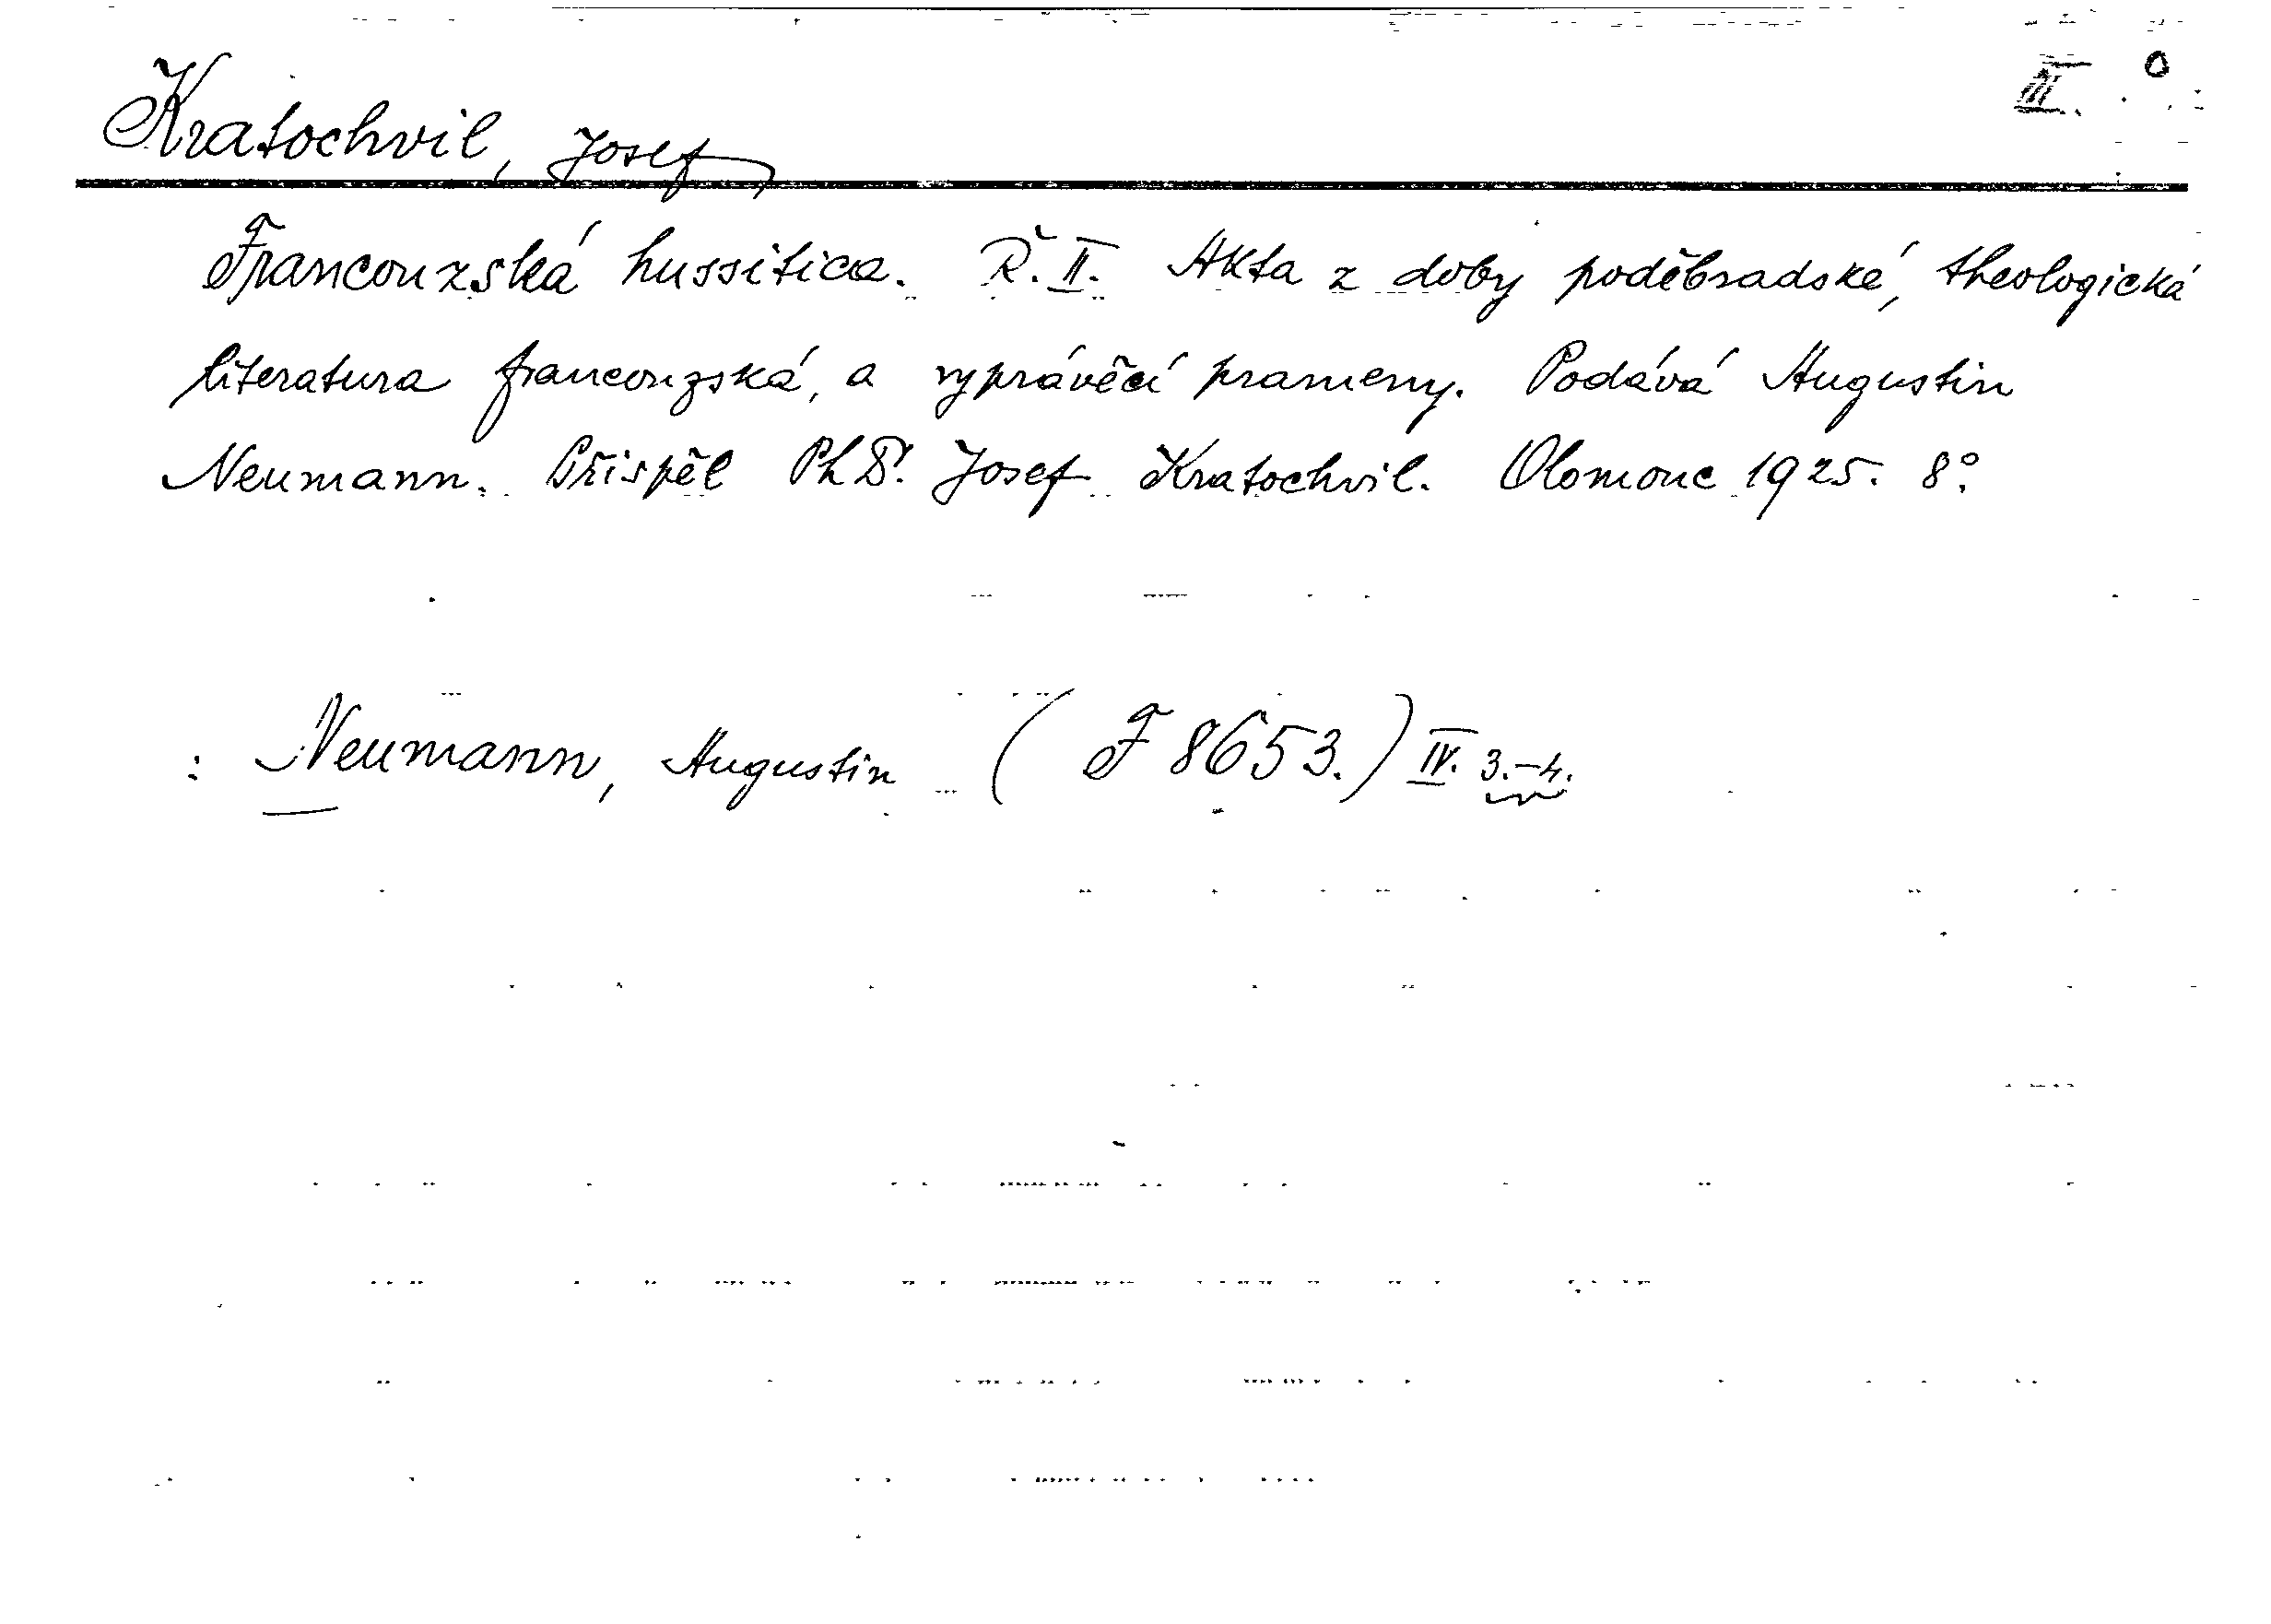 III. o
Kratochvil, Josef
Francouzská hussitica. Ř. II. Akta z doby poděbradské, theologická
literatura francouzská, a vyprávěcí prameny. Podává Augustin
Neumann. Přispěl PhDr. Josef Kratochvil. Olomouc 1925. 8°.
: Neumann, Augustin (F 8653.) IV. 3.-4.